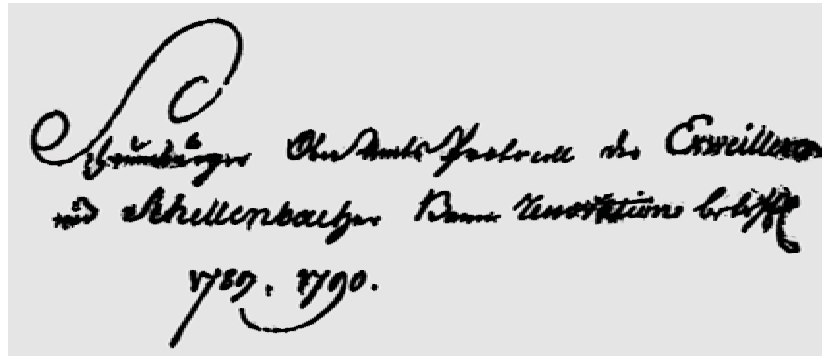 Schaumburger Ober Amts Protocoll die Erweiller
und Schellenbacher Bann Renovations betrfl
1789. 1790.